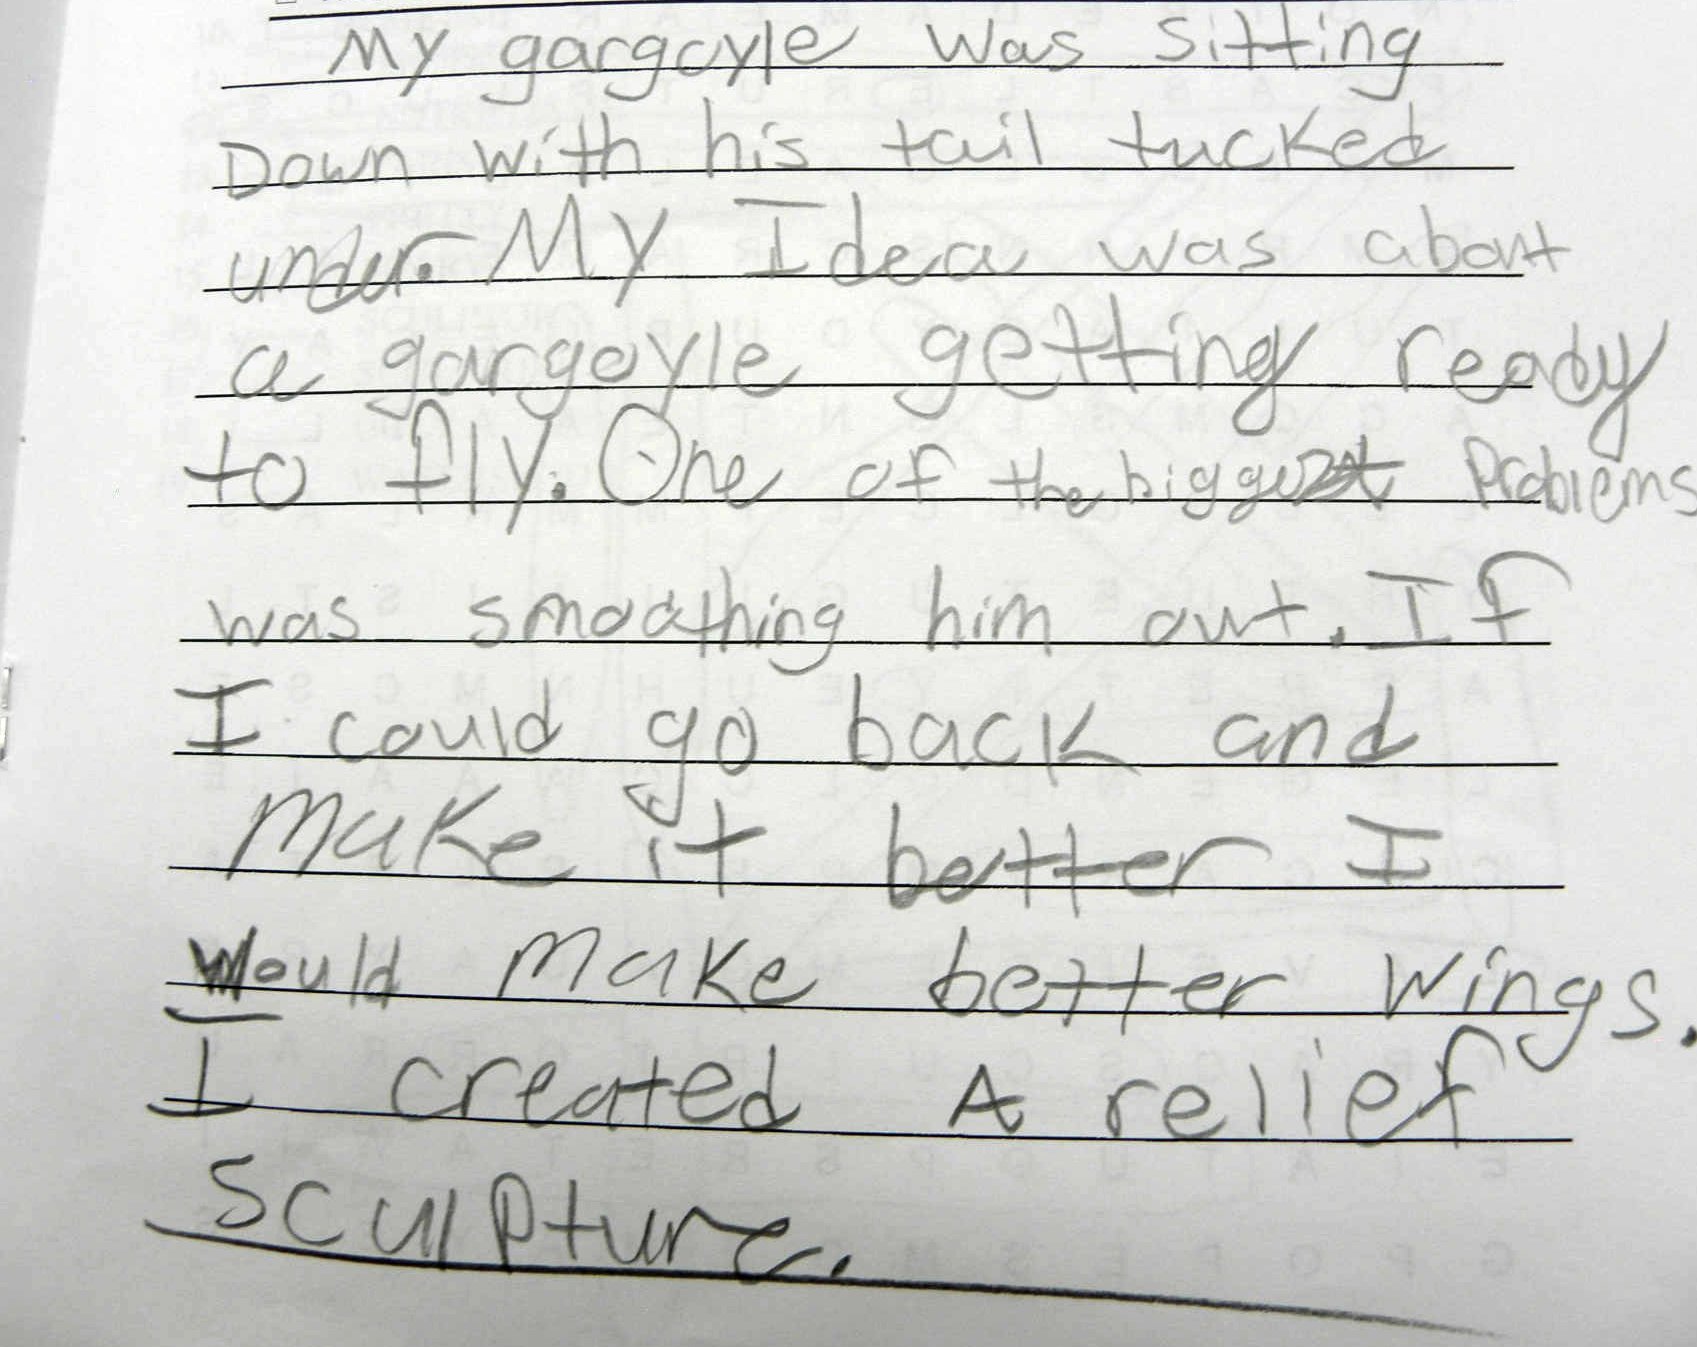 My gargoyle was sitting
Down with his tail tucked
under. My Idea was about
a gargoyle getting ready
to fly. One of the biggest Problems
was smoothing him out. If
I could go back and
Make it better I
would make better wings.
I created A relief
sculpture.